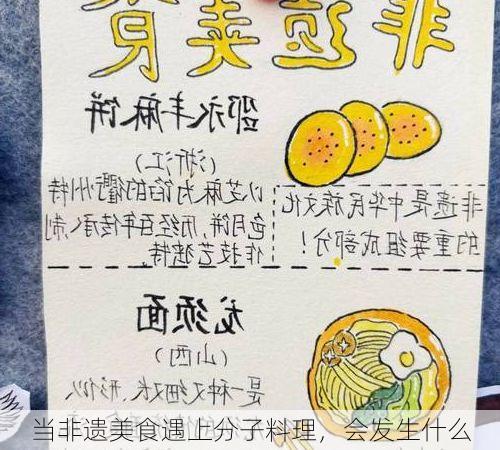 非遗美食
邵永丰麻饼
(浙江)
以芝麻为馅的衢州特
色月饼,历经百年传承,制
作技艺独特。
非遗是中华民族文化
的重要组成部分!
龙须面
(山西)
是一种又细又长,形似
当非遗美食遇上分子料理，会发生什么